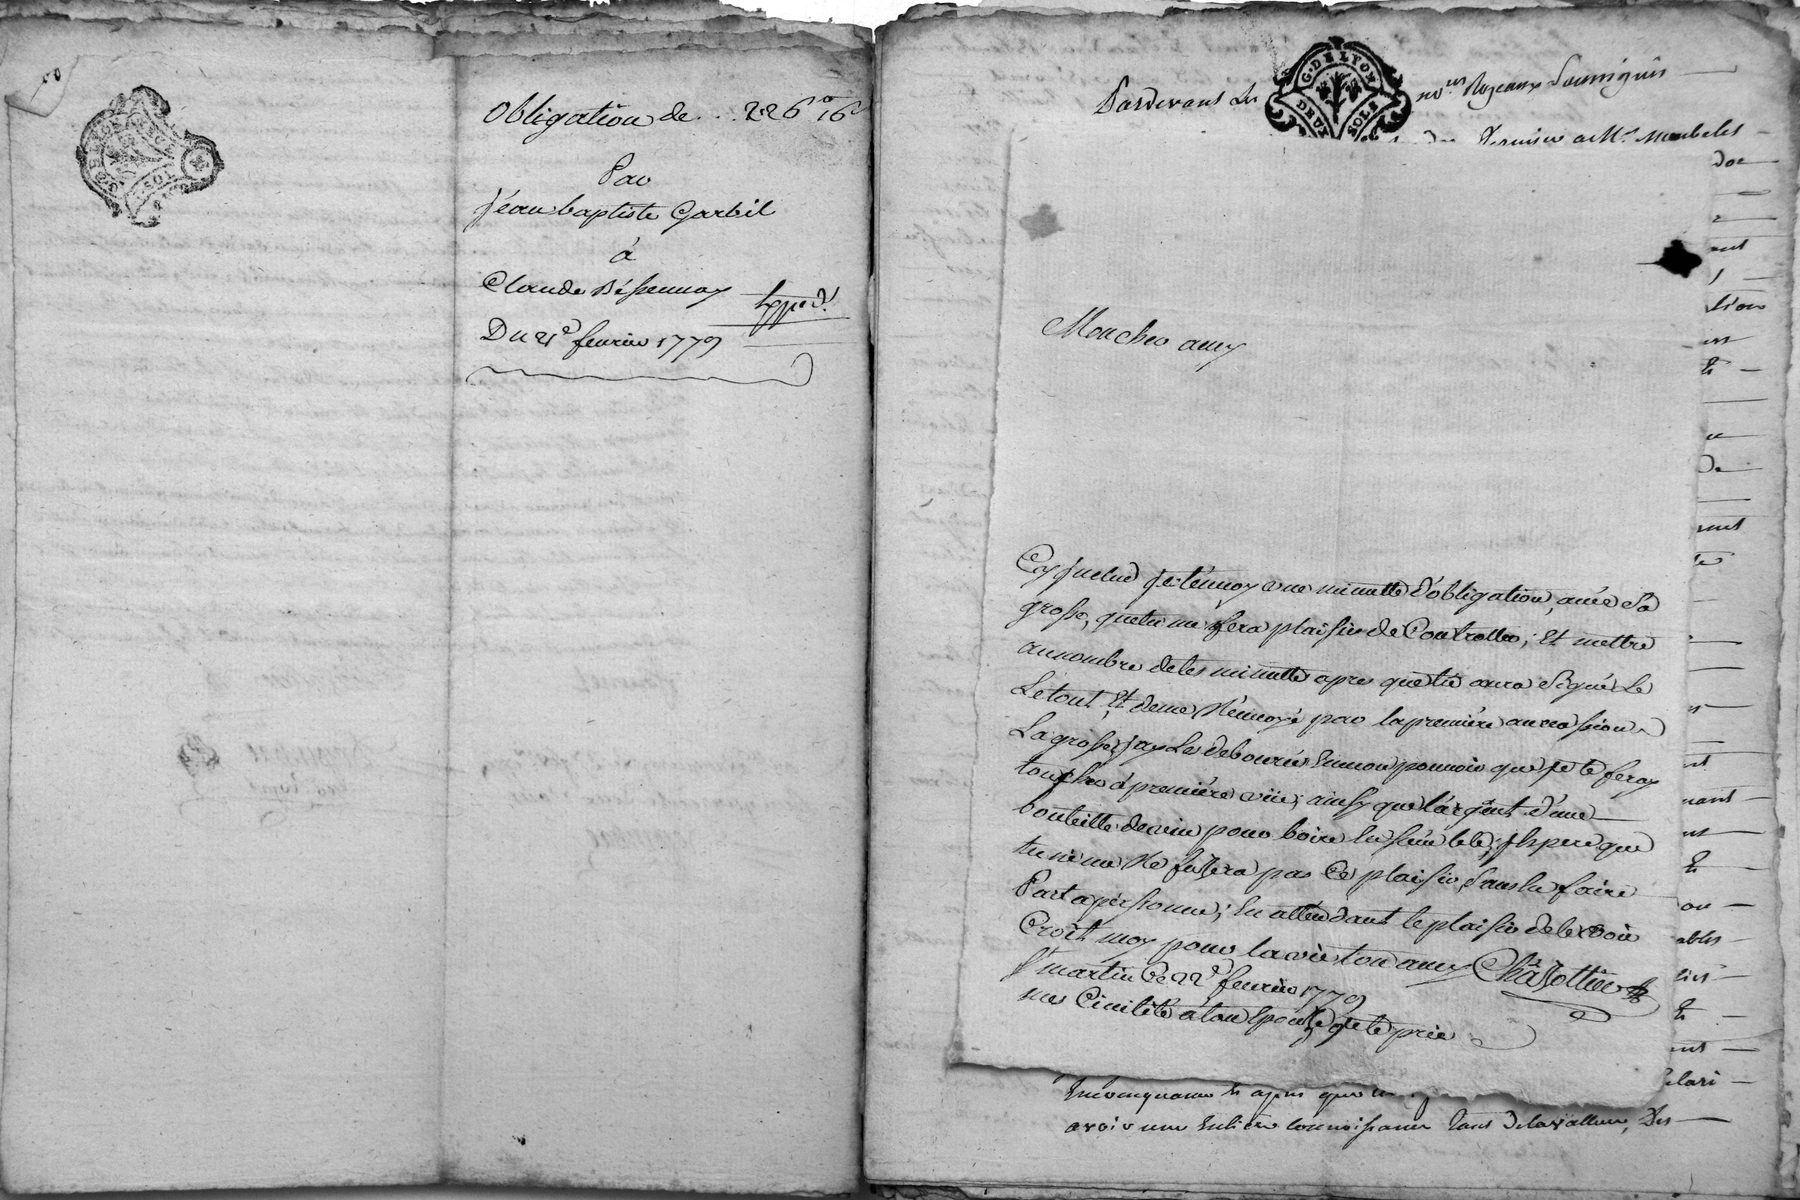 Obligation de . . . 226# 16s
Par
Jean baptiste Garbil
à
Claude Béssennay
Exped.
Du 21e fevrier 1779
Pardevant Les
G. DE LYON
DEUX SOLS
nores Royaux Soussignés
Mon cher amy
Cy Jnclud Je t'envoy une minutte d'obligation, avec Sa
grosse, que tu me fera plaisir de Controller, Et mettre
au nombre de tes minutte apres que tu aura Signé Le
Le tout, Et de me Renvoyé par la première aucassion
La grosse, jay Le debourcé En mon pouvoir que je te feray
toucher à première vüe; ainsy que l'argent d'une
bouteille de vin pour boire En semble; jEspere que
tu ne me Refusera pas Ce plaisir, Sans En faire
Part a personne; En attendant le plaisir de te voir
Croit moy pour la vie ton amy Châssottier
St martin Ce 22e fevrier 1779
mes Civilité à ton Epouse je te prie
avoir une Entiere connoissance tant de la valleur, Des